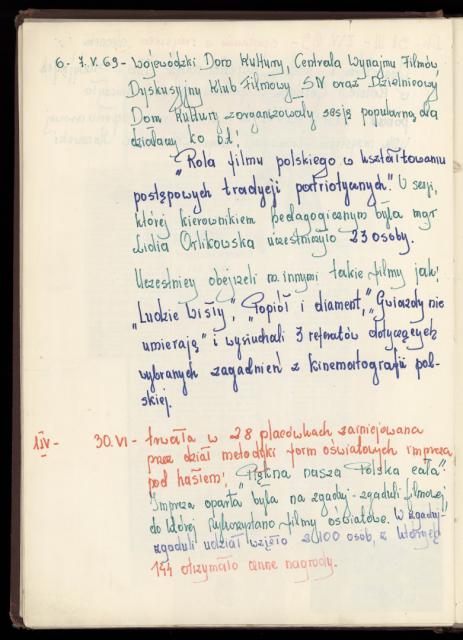 6-7.V.69 - Wojewódzki Dom Kultury, Centrala Wynajmu Filmów,
Dyskusyjny Klub Filmowy SN oraz Dzielnicowy
Dom Kultury zorganizowały sesję popularną dla
działaczy ko pt:
"Rola filmu polskiego w kształtowaniu
postępowych tradycji patriotycznych". W sesji,
której kierownikiem pedagogicznym była mgr
Lidia Orlikowska uczestniczyło 23 osoby.
Uczestnicy obejrzeli m.innymi takie filmy jak:
"Ludzie Wisły", "Popiół i diament", "Gwiazdy nie
umierają" i wysłuchali 3 referatów dotyczących
wybranych zagadnień z kinematografii pol-
skiej.
1.IV - 30.VI - trwała w 28 placówkach zainicjowana
przez dział metodyki form oświatowych impreza
pod hasłem: "Piękna nasza Polska cała".
Impreza oparta była na zgaduj-zgaduli filmowej,
do której wykorzystano filmy oświatowe. W zgaduj-
zgaduli udział wzięło 2100 osób, z których
144 otrzymało cenne nagrody.